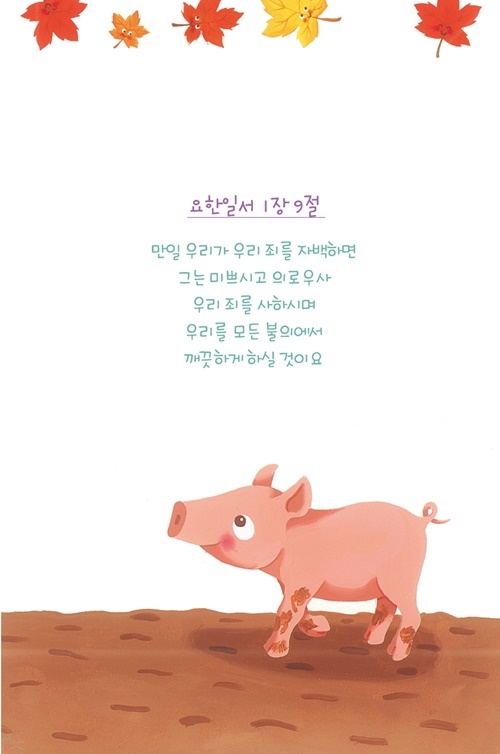 요한일서 1장 9절
만일 우리가 우리 죄를 자백하면
그는 미쁘시고 의로우사
우리 죄를 사하시며
우리를 모든 불의에서
깨끗하게 하실 것이요